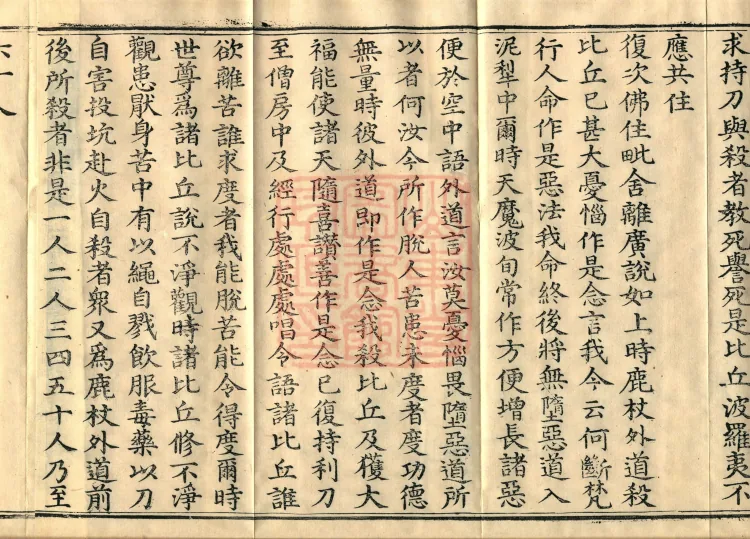 求持刀與殺者教死譽死是比丘波羅夷不
應共住
復次佛住毗舍離廣說如上時鹿杖外道殺
比丘已甚大憂惱作是念言我今云何斷梵
行人命作是惡法我命終後將無墮惡道入
泥犁中爾時天魔波旬常作方便增長諸惡
便於空中語外道言汝莫憂惱畏墮惡道所
以者何汝今所作脫人苦患未度者度功德
無量時彼外道即作是念我殺比丘及獲大
福能使諸天隨喜讃善作是念已復持利刀
至僧房中及經行處處處唱令語諸比丘誰
欲離苦誰求度者我能脫苦能令得度爾時
世尊為諸比丘說不淨觀時諸比丘修不淨
觀患厭身苦中有以繩自戮飲服毒藥以刀
自害投坑赴火自殺者衆又為鹿杖外道前
後所殺者非是一人二人三四五十人乃至
六十人